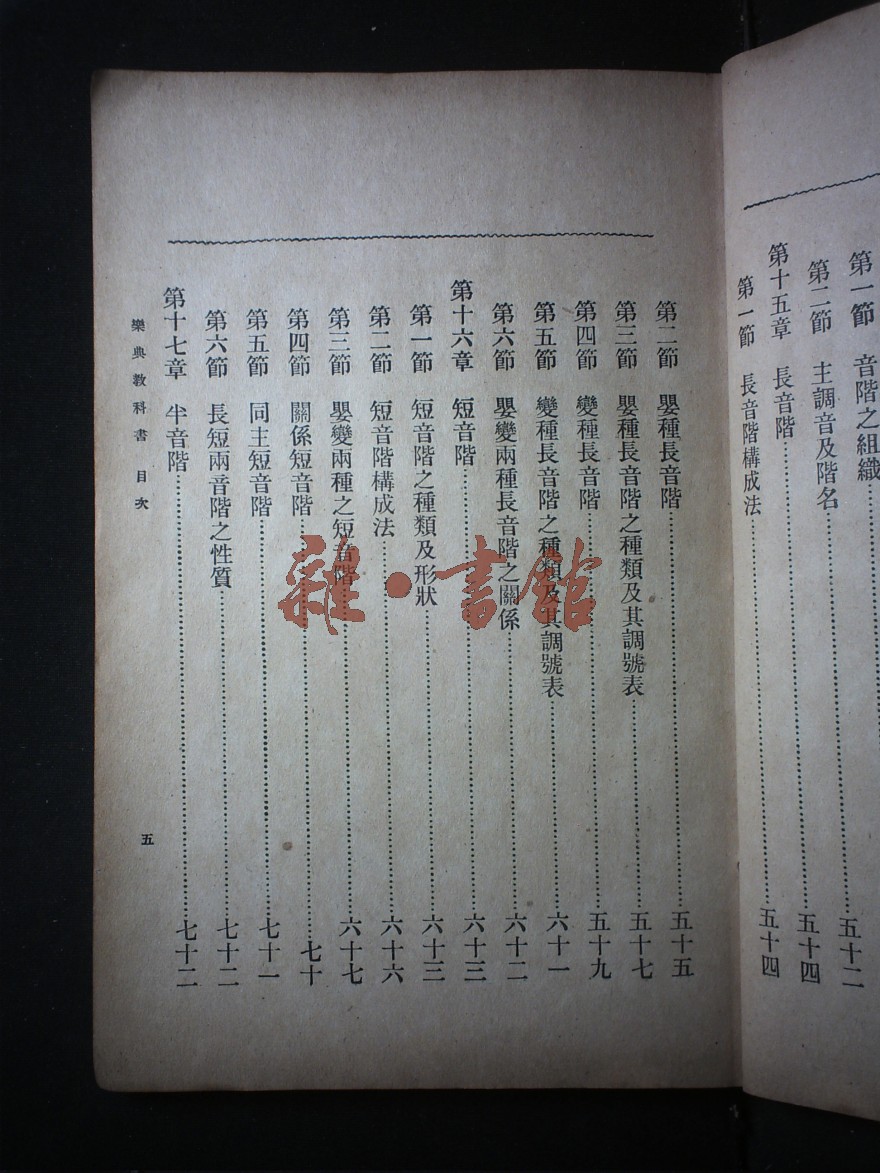 第一節 音階之組織 五十二
第二節 主調音及階名 五十四
第十五章 長音階
第一節 長音階構成法 五十四
第二節 嬰種長音階 五十五
第三節 嬰種長音階之種類及其調號表 五十七
第四節 變種長音階 五十九
第五節 變種長音階之種類及其調號表 六十一
第六節 嬰變兩種長音階之關係 六十二
第十六章 短音階 六十三
第一節 短音階之種類及形狀 六十三
第二節 短音階構成法 六十六
第三節 嬰變兩種之短音階 六十七
第四節 關係短音階 七十
第五節 同主短音階 七十一
第六節 長短兩音階之性質 七十二
第十七章 半音階 七十二
樂典教科書 目次 五
雜·書館